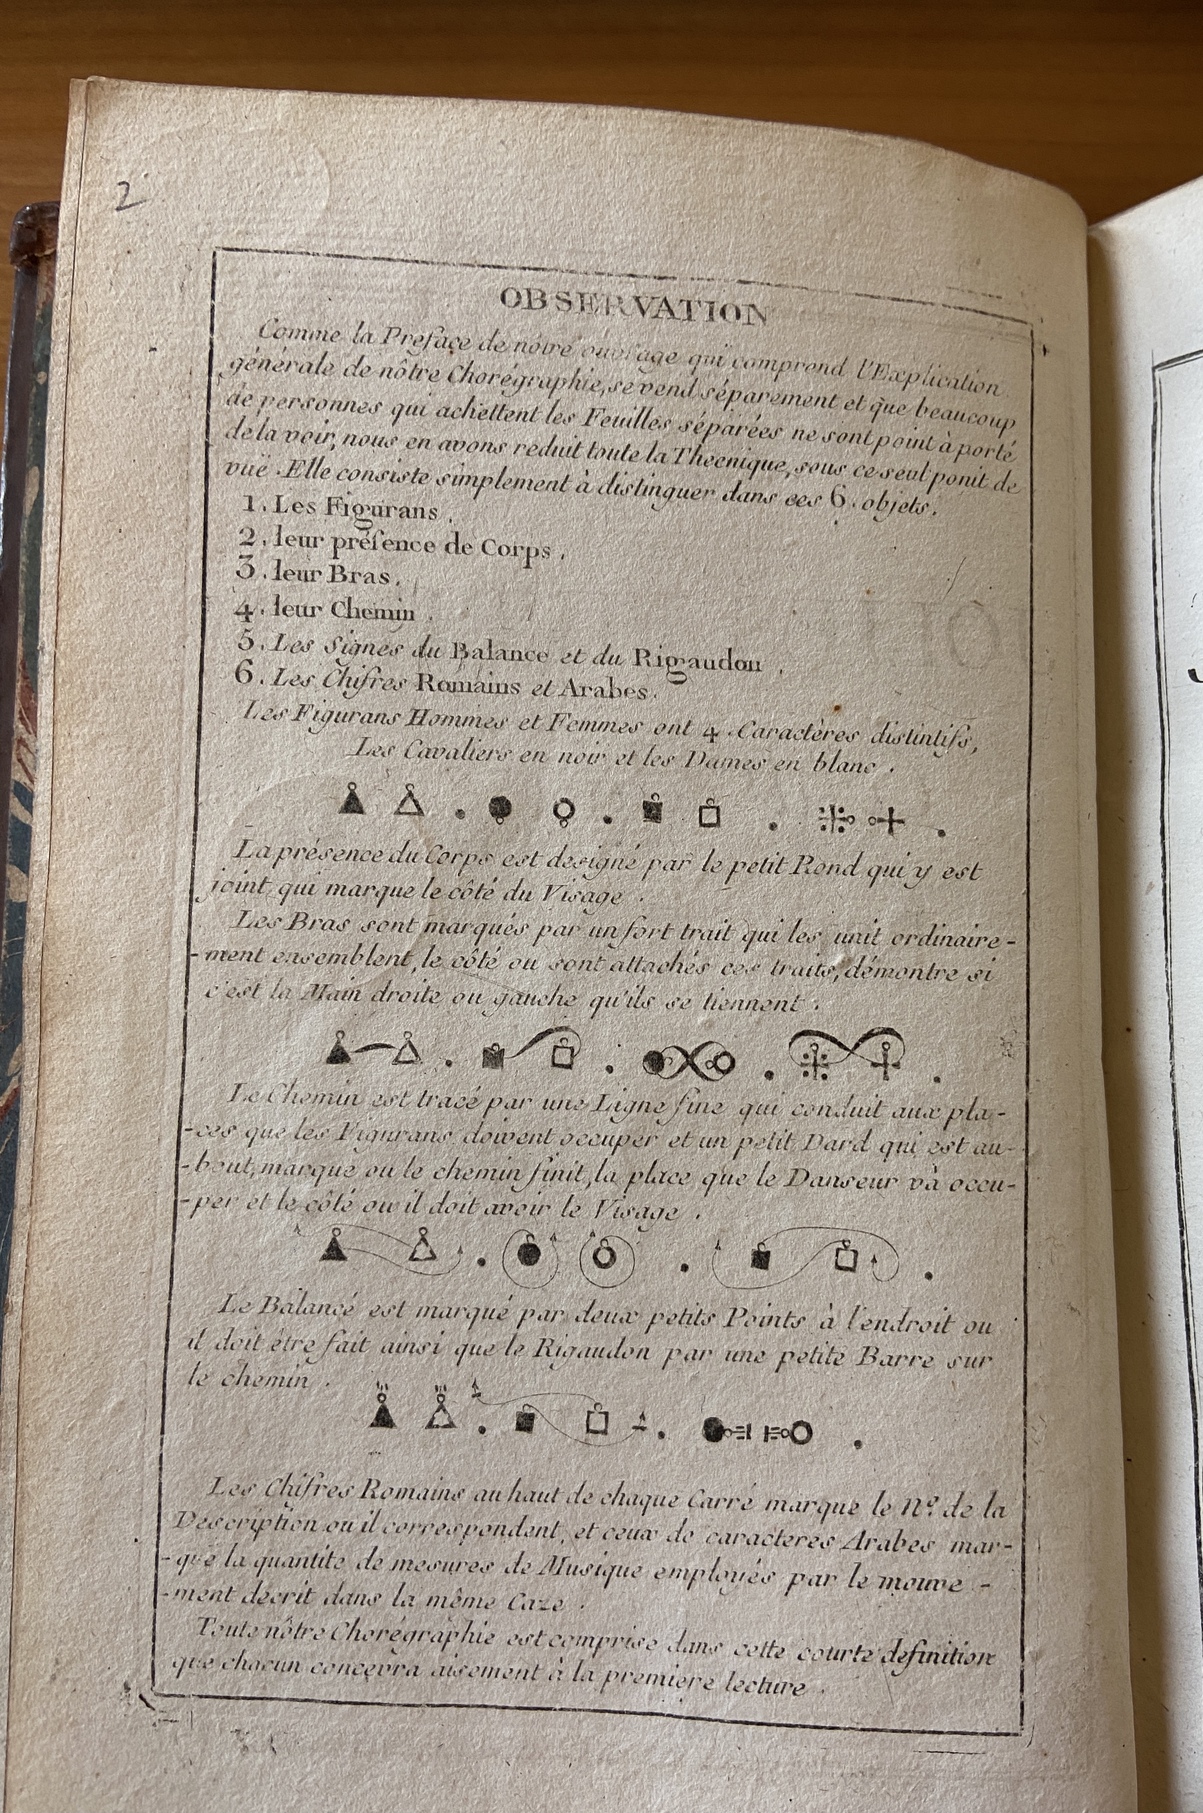 2
OBSERVATION
Comme la Preface de nôtre ouvrage qui comprend l'Explication
générale de nôtre Chorégraphie, se vend séparement et que beaucoup
de personnes qui achettent les Feuilles séparées ne sont point à porté
de la voir, nous en avons reduit toute la Theenique, sous ce seul ponit de
vuë. Elle consiste simplement à distinguer dans ces 6. objets.
1. Les Figurans.
2. leur présence de Corps.
3. leur Bras.
4. leur Chemin.
5. Les Signes du Balance et du Rigaudon
6. Les Chifres Romains et Arabes.
Les Figurans Hommes et Femmes ont 4. Caractères distintifs,
Les Cavaliers en noir et les Dames en blanc.
La présence du Corps est designé par le petit Rond qui y est
joint, qui marque le côté du Visage.
Les Bras sont marqués par un fort trait qui les unit ordinaire-
-ment ensemblent, le côté ou sont attachés ces traits, démontre si
c'est la Main droite ou gauche qu'ils se tiennent.
Le Chemin est tracé par une Ligne fine qui conduit aux pla-
-ces que les Figurans doivent occuper et un petit Dard qui est au-
-bout, marque ou le chemin finit, la place que le Danseur và occu-
-per et le côté ou il doit avoir le Visage.
Le Balancé est marqué par deux petits Points à l'endroit ou
il doit être fait ainsi que le Rigaudon par une petite Barre sur
le chemin.
Les Chifres Romains au haut de chaque Carré marque le N.º de la
Description ou il correspondent, et ceux de caracteres Arabes mar-
-que la quantité de mesures de Musique employés par le mouve-
-ment decrit dans la même Caze.
Toute nôtre Chorégraphie est comprise dans cette courte definition
que chacun concevra aisement à la premiere lecture.